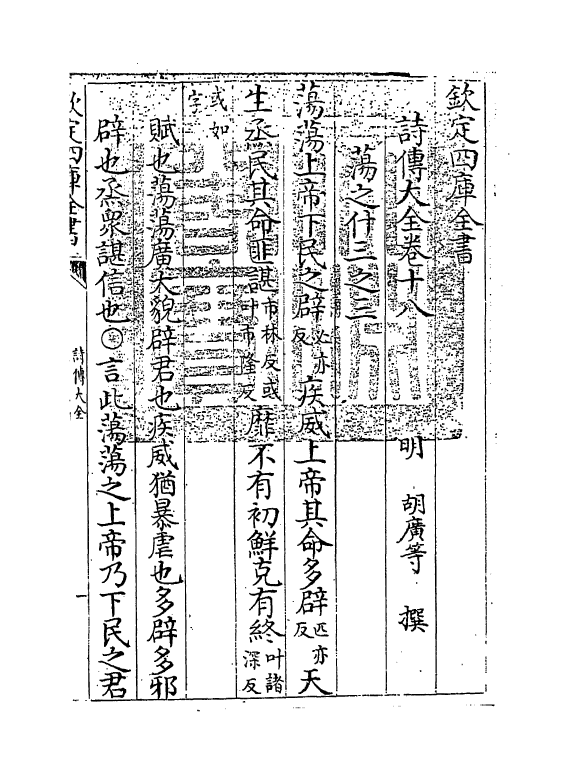 欽定四庫全書
詩傳大全卷十八
明 胡廣等 撰
蕩之什三之三
蕩蕩上帝下民之辟必亦反疾威上帝其命多辟匹亦反天
生烝民其命匪諶市林反或叶市隆反靡不有初鮮克有終叶諸深反
或如字
賦也蕩蕩廣大貌辟君也疾威猶暴虐也多辟多邪
辟也烝衆諶信也○言此蕩蕩之上帝乃下民之君
欽定四庫全書
詩傳大全
一